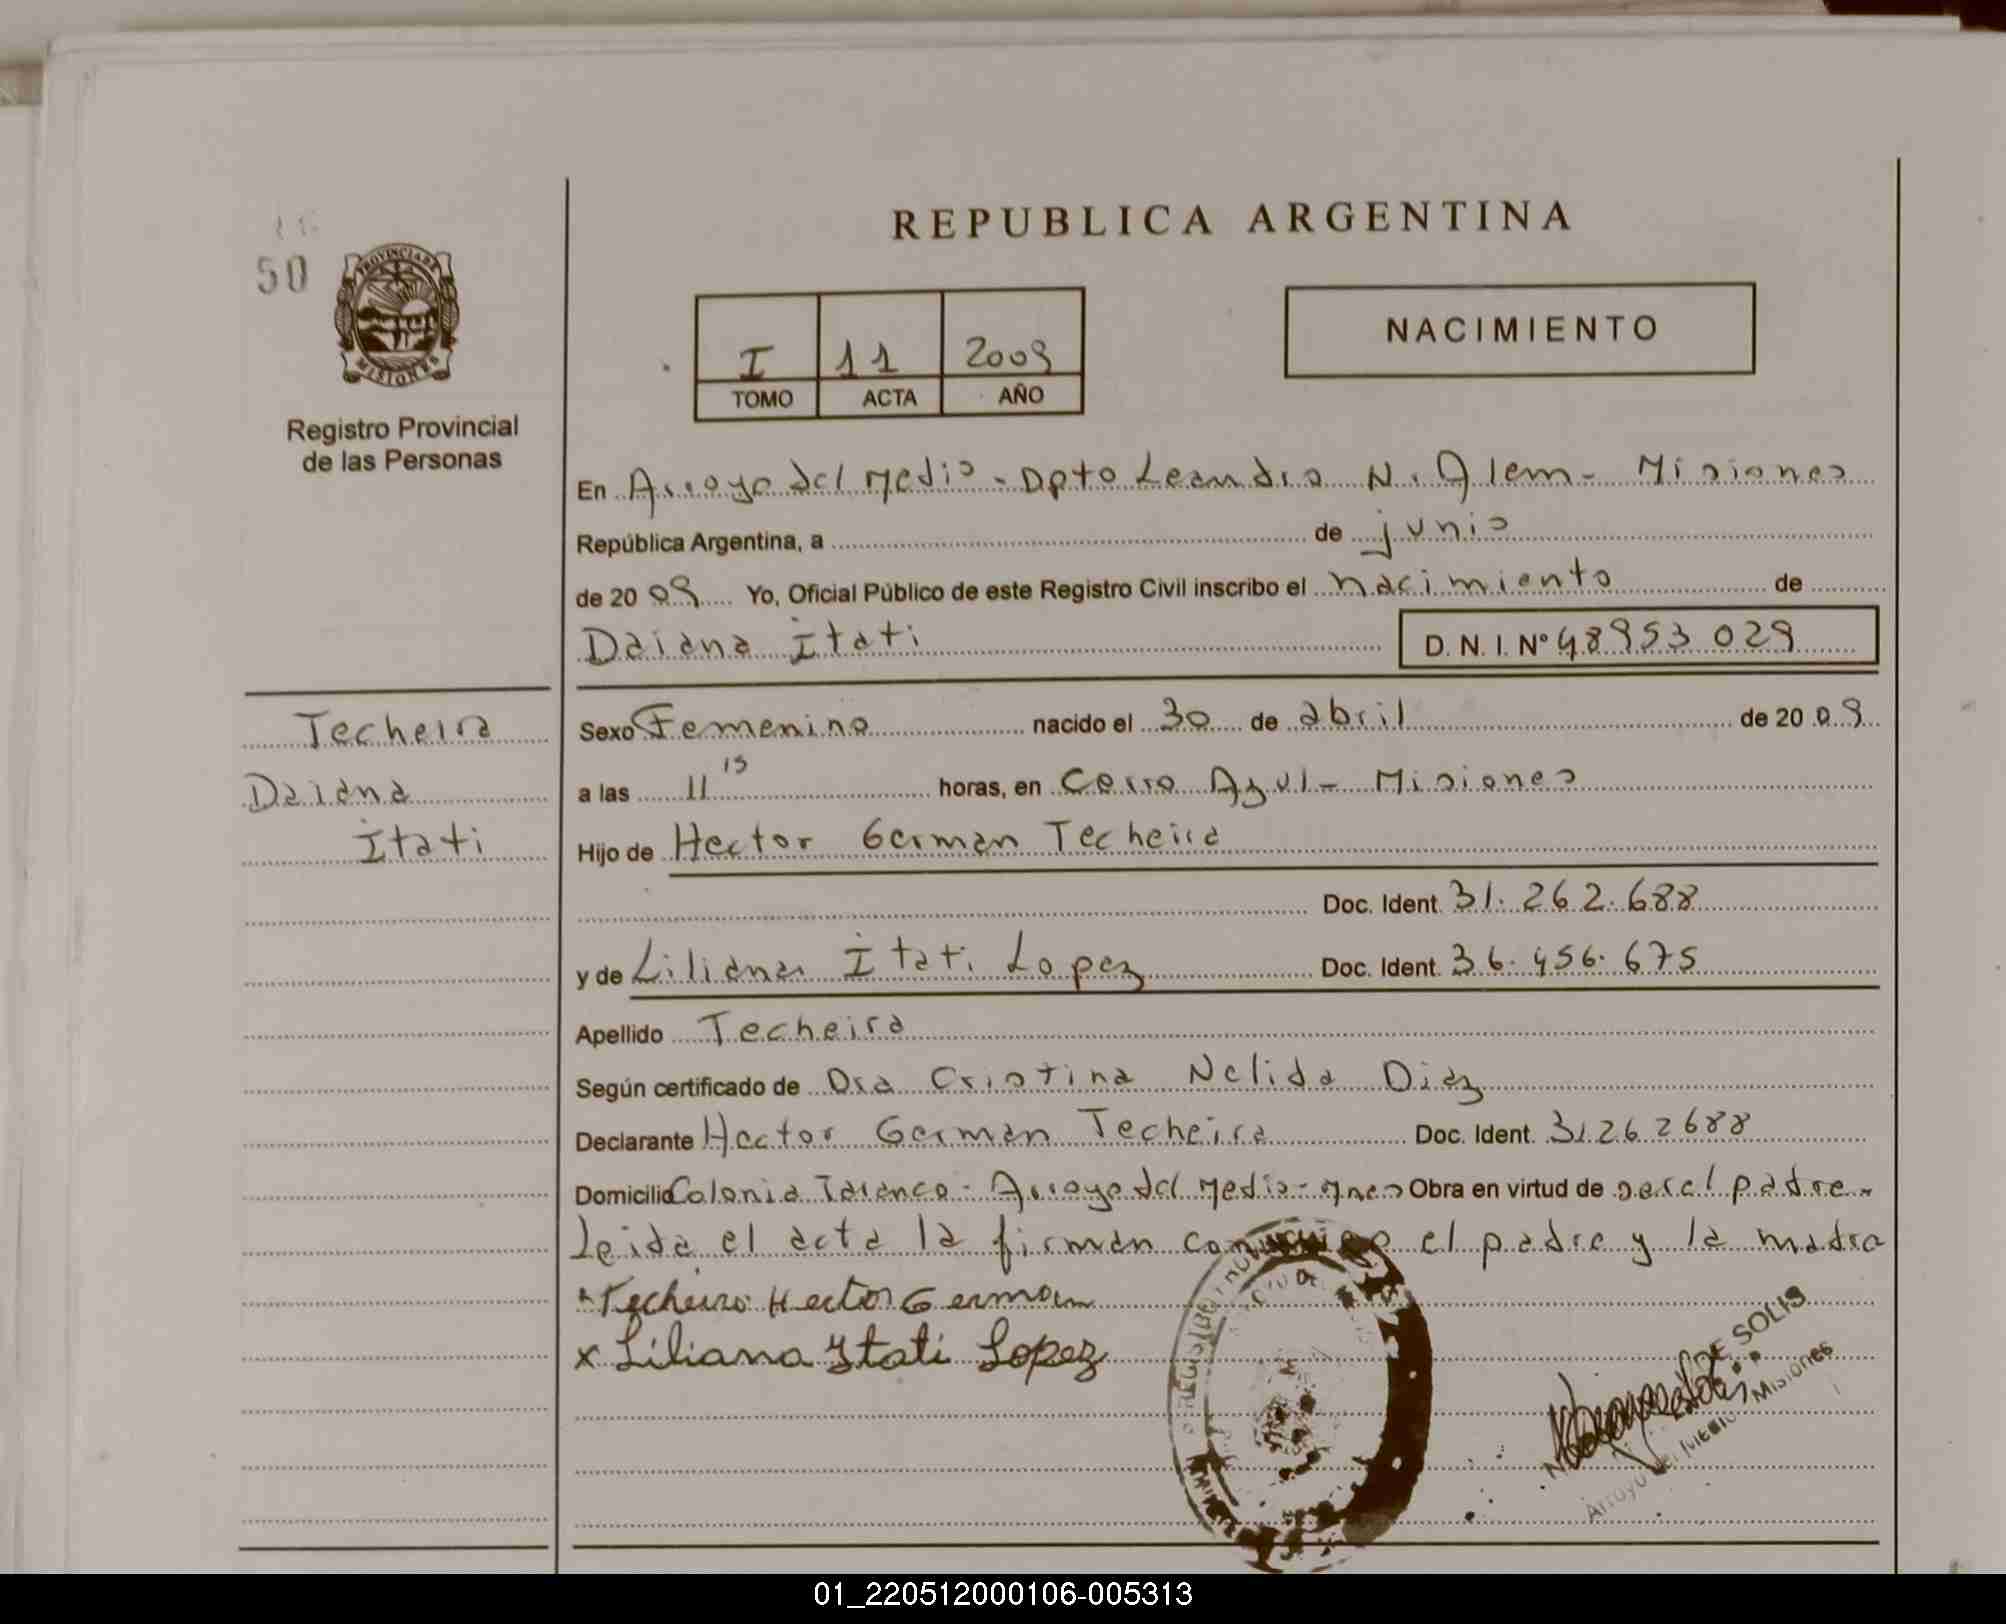 50
PROVINCIA DE
MISIONES
Registro Provincial
de las Personas
REPUBLICA ARGENTINA
I 11 2009
TOMO ACTA AÑO
NACIMIENTO
En Arroyo del Medio - Dpto Leandro N. Alem - Misiones
República Argentina, a de junio
de 2009 Yo, Oficial Público de este Registro Civil inscribo el nacimiento de
Daiana Itati D. N. I. Nº 48953029
Techeira
Daiana
Itati
Sexo Femenino nacido el 30 de abril de 2009
a las 11 15 horas, en Cerro Azul - Misiones
Hijo de Hector German Techeira
Doc. Ident. 31.262.688
y de Liliana Itati Lopez Doc. Ident. 36.456.675
Apellido Techeira
Según certificado de Dra Cristina Nelida Diaz
Declarante Hector German Techeira Doc. Ident. 31262688
Domicilio Colonia Taranco - Arroyo del Medio - Mnes Obra en virtud de ser el padre -
Leida el acta la firman conmigo el padre y la madre
Techeira Hector German
x Liliana Itati Lopez
DE SOLIS
Arroyo del Medio Misiones
01_220512000106-005313